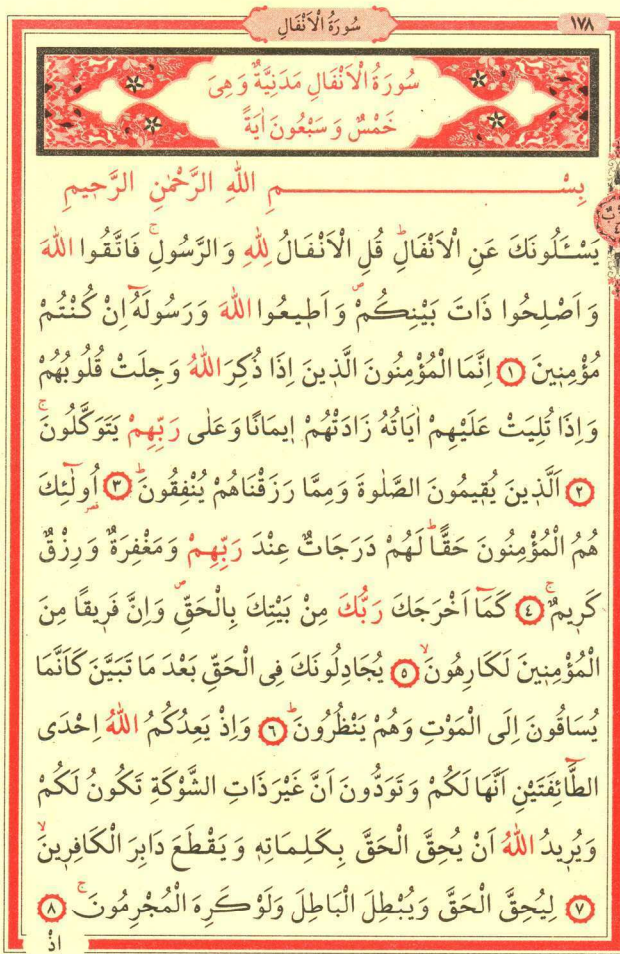 سُورَةُ الْاَنْفَالِ
١٧٨
سُورَةُ الْاَنْفَالِ مَدَنِيَّةٌ وَهِىَ
خَمْسٌ وَسَبْعُونَ اٰيَةً
بِسْــــــــمِ اللهِ الرَّحْمٰنِ الرَّح۪يمِ
يَسْـَٔلُونَكَ عَنِ الْاَنْفَالِۜ قُلِ الْاَنْفَالُ لِلّٰهِ وَالرَّسُولِۚ فَاتَّقُوا اللهَ
وَاَصْلِحُوا ذَاتَ بَيْنِكُمْۖ وَاَط۪يعُوا اللهَ وَرَسُولَهُٓ اِنْ كُنْتُمْ
مُؤْمِن۪ينَ ﴿١﴾ اِنَّمَا الْمُؤْمِنُونَ الَّذ۪ينَ اِذَا ذُكِرَ اللهُ وَجِلَتْ قُلُوبُهُمْ
وَاِذَا تُلِيَتْ عَلَيْهِمْ اٰيَاتُهُ زَادَتْهُمْ ا۪يمَانًا وَعَلٰى رَبِّهِمْ يَتَوَكَّلُونَۚ
﴿٢﴾ اَلَّذ۪ينَ يُق۪يمُونَ الصَّلٰوةَ وَمِمَّا رَزَقْنَاهُمْ يُنْفِقُونَۜ ﴿٣﴾ اُو۬لٰٓئِكَ
هُمُ الْمُؤْمِنُونَ حَقًّاۜ لَهُمْ دَرَجَاتٌ عِنْدَ رَبِّهِمْ وَمَغْفِرَةٌ وَرِزْقٌ
كَر۪يمٌۚ ﴿٤﴾ كَمَٓا اَخْرَجَكَ رَبُّكَ مِنْ بَيْتِكَ بِالْحَقِّۖ وَاِنَّ فَر۪يقًا مِنَ
الْمُؤْمِن۪ينَ لَكَارِهُونَۙ ﴿٥﴾ يُجَادِلُونَكَ فِى الْحَقِّ بَعْدَ مَا تَبَيَّنَ كَاَنَّمَا
يُسَاقُونَ اِلَى الْمَوْتِ وَهُمْ يَنْظُرُونَۜ ﴿٦﴾ وَاِذْ يَعِدُكُمُ اللهُ اِحْدَى
الطَّٓائِفَتَيْنِ اَنَّهَا لَكُمْ وَتَوَدُّونَ اَنَّ غَيْرَ ذَاتِ الشَّوْكَةِ تَكُونُ لَكُمْ
وَيُر۪يدُ اللهُ اَنْ يُحِقَّ الْحَقَّ بِكَلِمَاتِه۪ وَيَقْطَعَ دَابِرَ الْكَافِر۪ينَۙ
﴿٧﴾ لِيُحِقَّ الْحَقَّ وَيُبْطِلَ الْبَاطِلَ وَلَوْ كَرِهَ الْمُجْرِمُونَۚ ﴿٨﴾
اِذْ